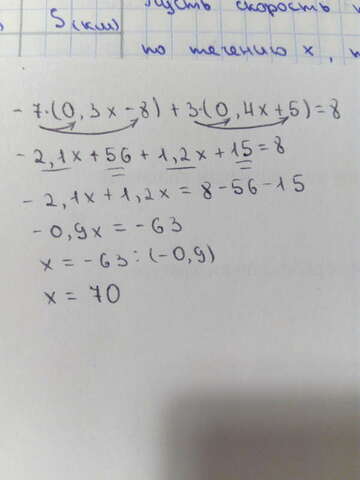 S(км)
пусть скорость
по течению x,
- 7·(0,3x-8)+3·(0,4x+5)=8
- 2,1x+56+1,2x+15=8
- 2,1x+1,2x = 8-56-15
-0,9x = -63
x = -63:(-0,9)
x = 70